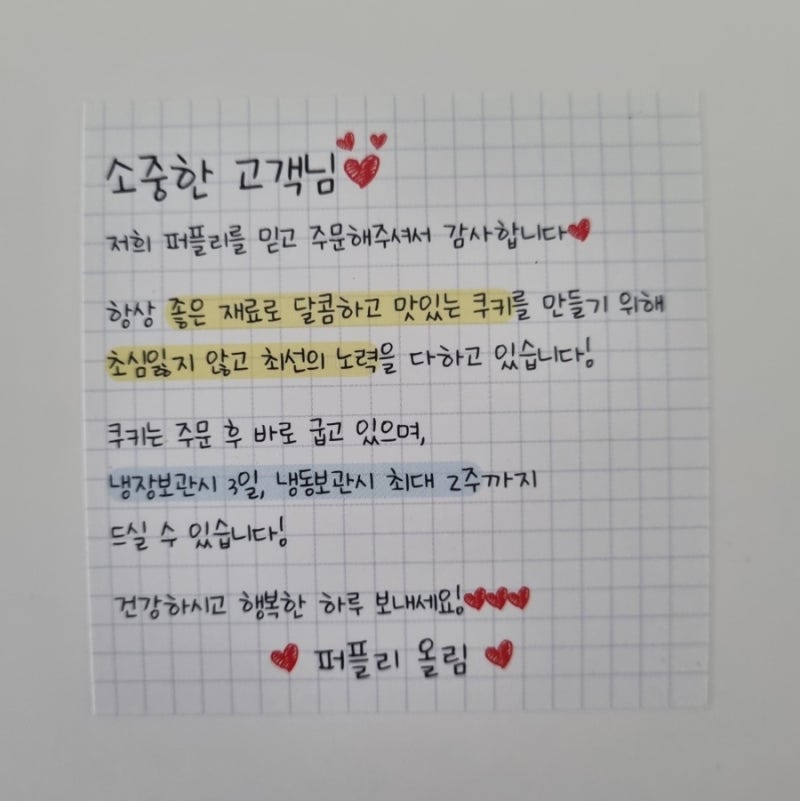 소중한 고객님
저희 퍼플리를 믿고 주문해주셔서 감사합니다
항상 좋은 재료로 달콤하고 맛있는 쿠키를 만들기 위해
초심잃지 않고 최선의 노력을 다하고 있습니다!
쿠키는 주문 후 바로 굽고 있으며,
냉장보관시 3일, 냉동보관시 최대 2주까지
드실 수 있습니다!
건강하시고 행복한 하루 보내세요!
퍼플리 올림